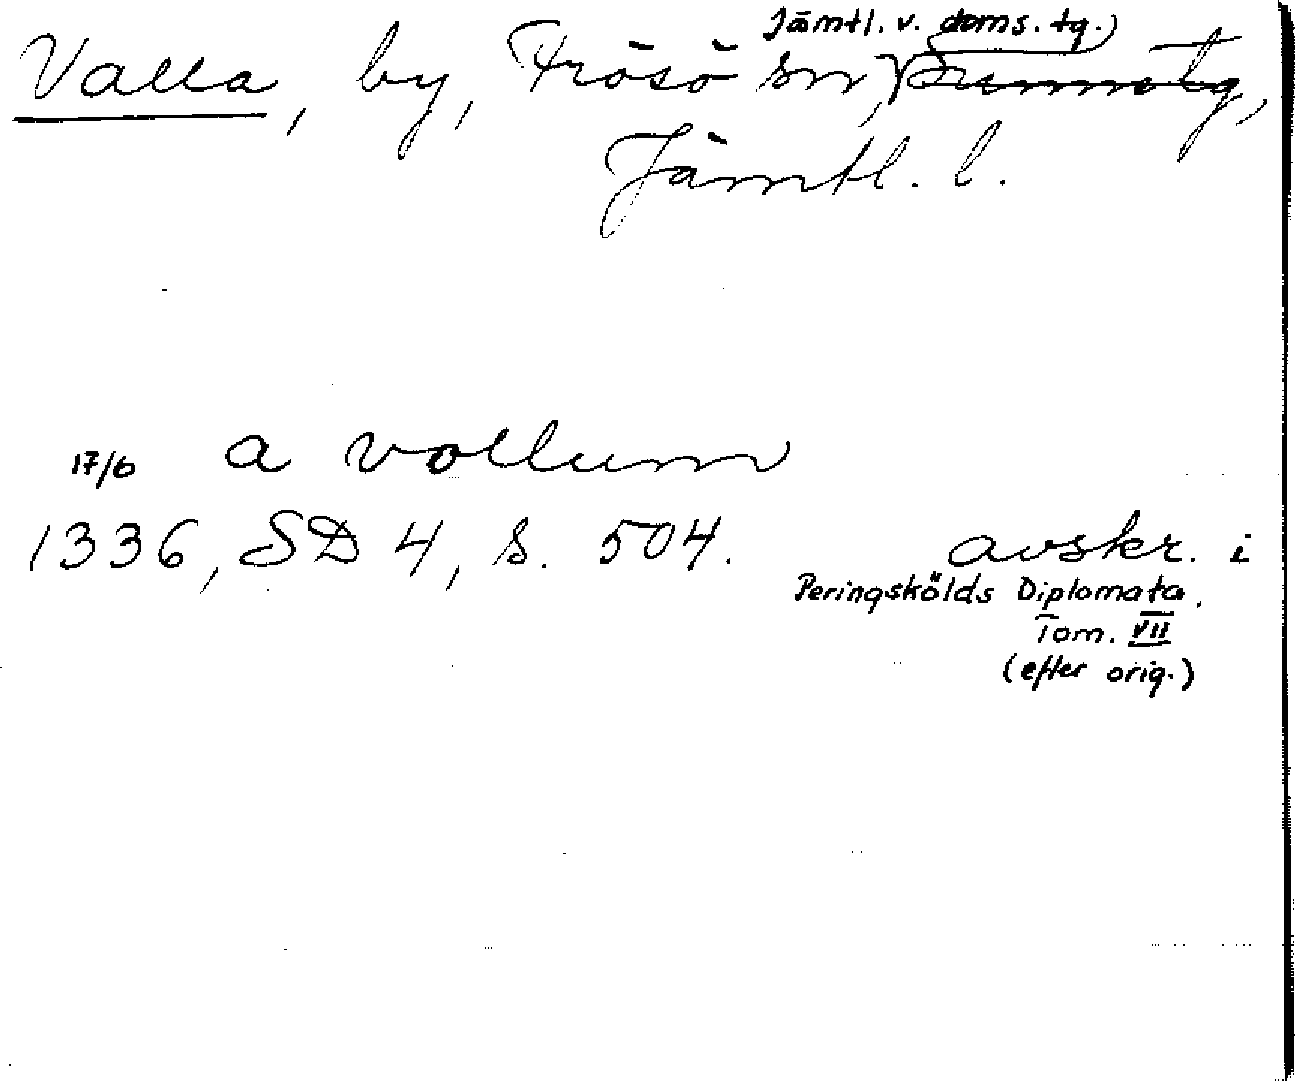 Jämtl. v. doms. tg.)
Valla, by, Frösö sn, Sunnetg,
Jämtl. l.
17/6 a vollum
1336, SD 4, s. 504. avskr. i
Peringskölds Diplomata.
Tom. VII
(efter orig.)